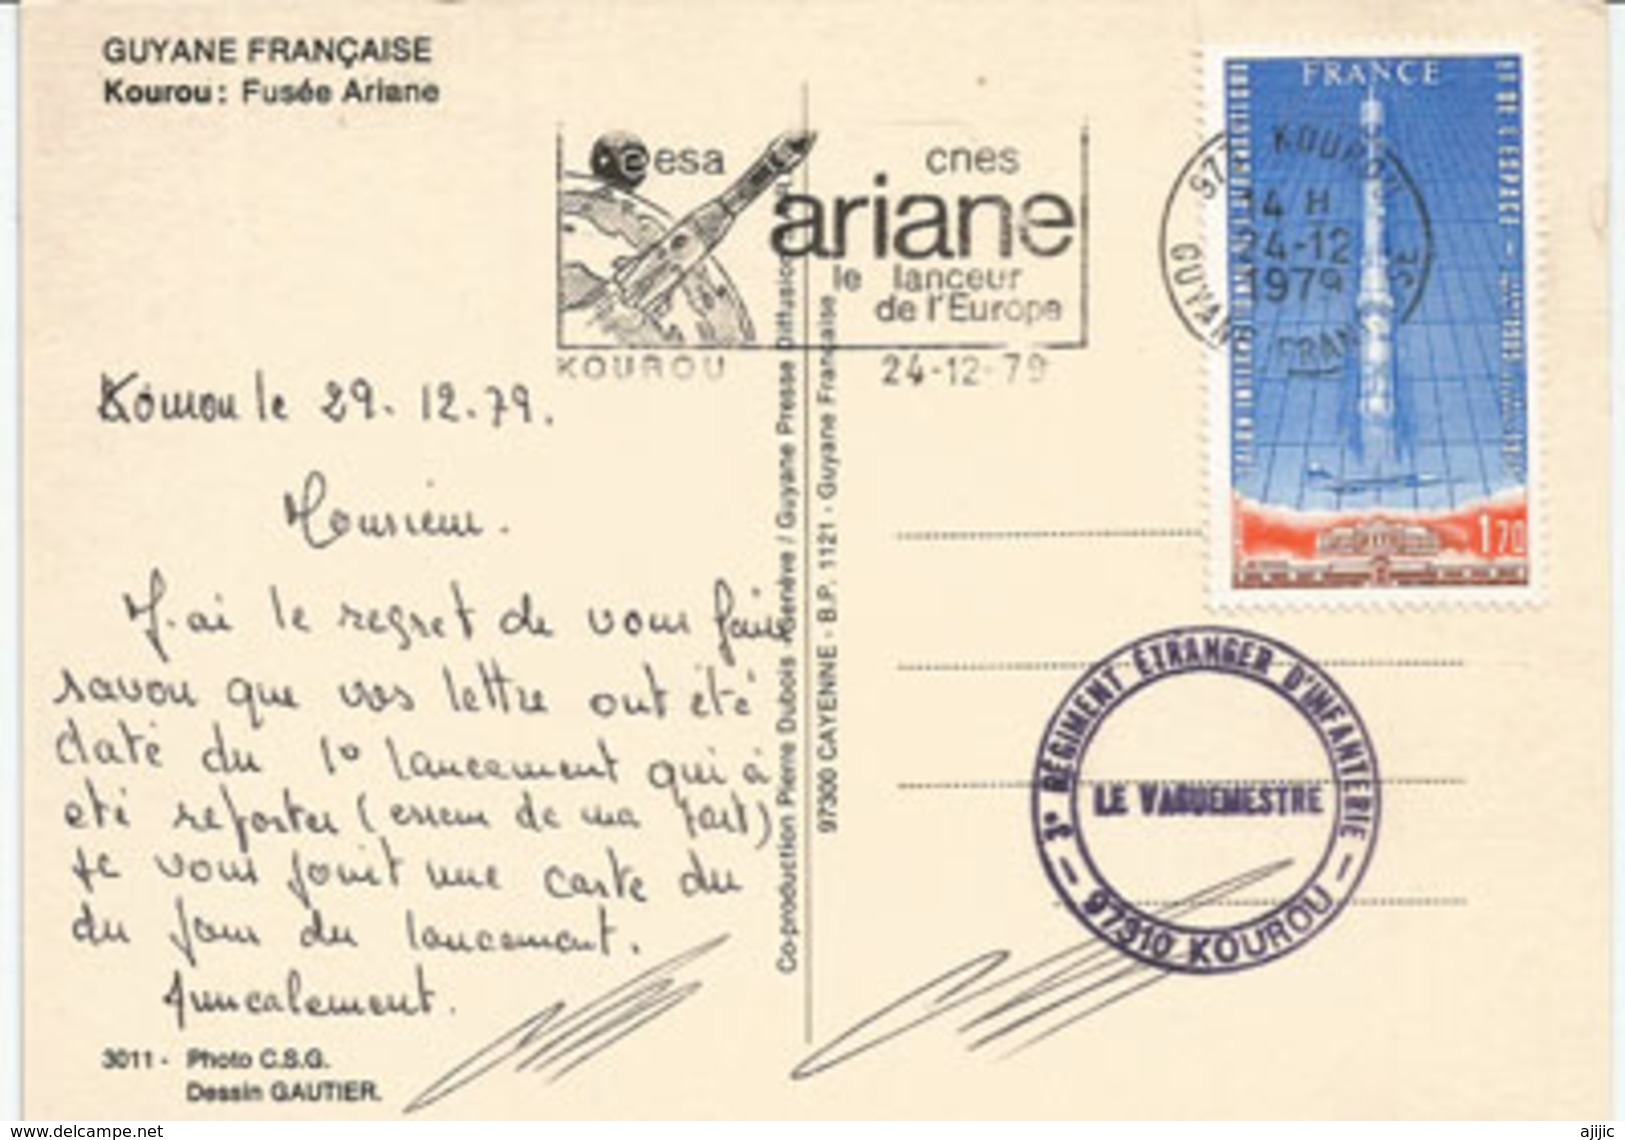 GUYANE FRANÇAISE
Kourou: Fusée Ariane
esa
cnes
ariane
le lanceur
de l'Europe
KOUROU
24-12-79
973 KOUROU
14 H
24-12
1979
GUYANE FRANÇAISE
FRANCE
1,70
Kourou le 29.12.79.
Monsieur.
J'ai le regret de vous faire
savoir que vos lettre ont été
daté du 1° lancement qui à
eté reporter (erreur de ma part)
je vous joint une carte du
du jour du lancement.
Amicalement.
3011 - Photo C.S.G.
Dessin GAUTIER.
Co-production Pierre Dubois - Genève / Guyane Presse Diffusion
97300 CAYENNE - B.P. 1121 - Guyane Française
3e RÉGIMENT ÉTRANGER D'INFANTERIE
LE VAGUEMESTRE
97310 KOUROU
www.delcampe.net
ajijic